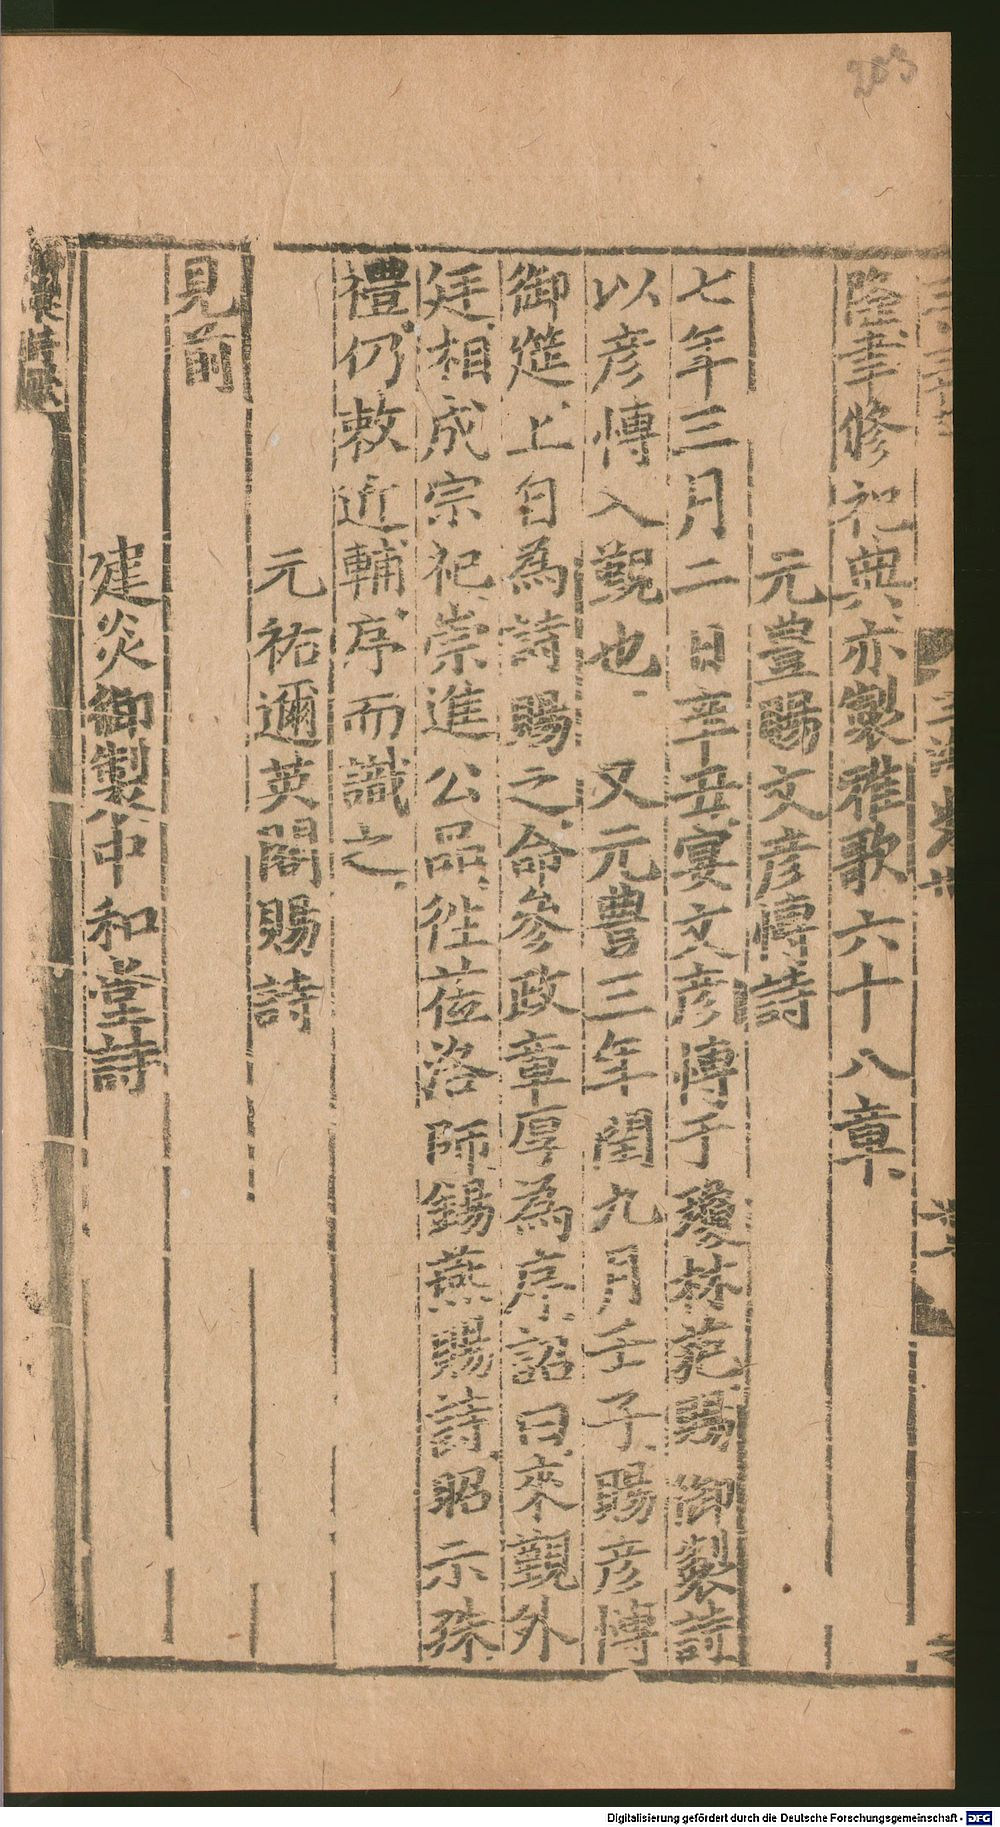 203
隆聿修祀典亦製雅歌六十八章
元豊賜文彦博詩
七年三月二日辛丑宴文彦博于瓊林苑賜御製詩
以彦博入覲也 又元豊三年閏九月壬子賜彦博
御筵上自為詩賜之命參政章厚為序詔曰來覲外
廷相成宗祀崇進公品徃莅洛師錫燕賜詩昭示殊
禮仍敕近輔序而識之
元祐邇英閣賜詩
見前
建炎御製中和堂詩
Digitalisierung gefördert durch die Deutsche Forschungsgemeinschaft - DFG